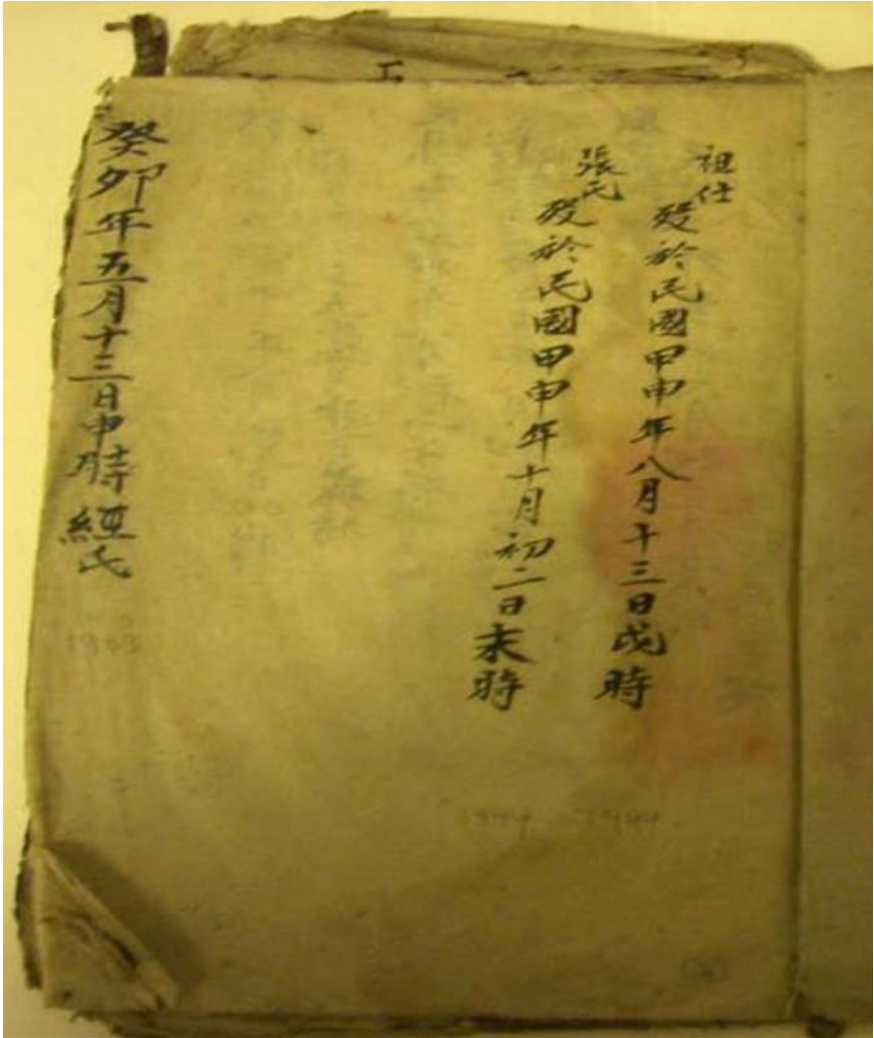 祖仕
歿於民國甲申年八月十三日戌時
張氏
歿於民國甲申年十月初二日未時
癸卯年五月十三日申時 經氏
1944